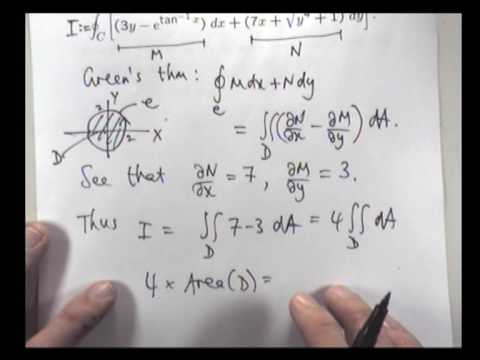 I:=∮_C [(3y − e^{tan⁻¹ x}) dx + (7x + √y⁴ + 1) dy].
M N
Green's thm: ∮_C Mdx + Ndy
Y C
2 X
D 2
= ∬_D (∂N/∂x − ∂M/∂y) dA.
See that ∂N/∂x = 7, ∂M/∂y = 3.
Thus I = ∬_D 7−3 dA = 4 ∬_D dA
4 × Area(D) =